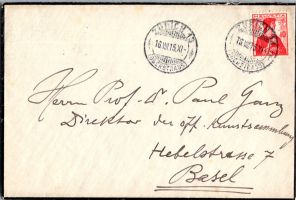 ZÜRICH
16.VIII.15.XI-
ZÜRICH
16.VIII.15.XI-
HELVETIA
10
Herrn Prof. Dr. Paul Ganz
Direktor der öff. Kunstsammlung
Hebelstrasse 7
Basel